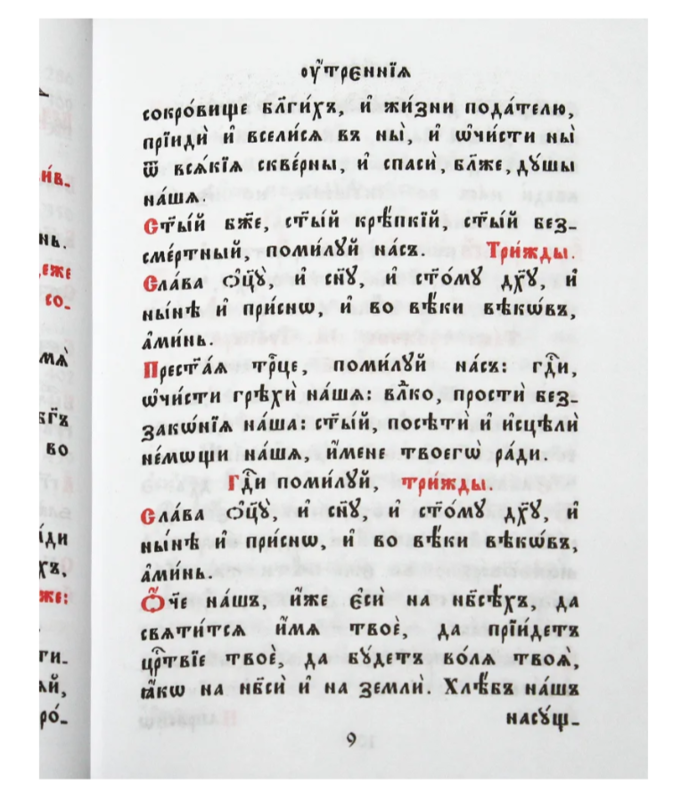 оу҆́трєннїѧ
сокро́вище бл҃ги́хъ, и҆ жи́зни пода́телю,
прїидѝ и҆ всели́сѧ въ ны̀, и҆ ѡ҆чи́сти ны̀
ѿ всѧ́кїѧ скве́рны, и҆ спасѝ, бл҃же, дꙋ́шы
на́шѧ.
Ст҃ы́й бж҃е, ст҃ы́й крѣ́пкїй, ст҃ы́й без-
сме́ртный, поми́лꙋй на́съ. Три́жды.
Сла́ва ѻ҆ц҃ꙋ̀, и҆ сн҃ꙋ, и҆ ст҃о́мꙋ дх҃ꙋ, и҆
ны́нѣ и҆ при́снѡ, и҆ во вѣ́ки вѣкѡ́въ,
а҆ми́нь.
Прест҃а́ѧ трⷪ҇це, поми́лꙋй на́съ: гдⷭ҇и,
ѡ҆чи́сти грѣхѝ на́шѧ: влⷣко, простѝ без-
закѡ́нїѧ на́ша: ст҃ы́й, посѣтѝ и҆ и҆сцѣлѝ
не́мѡщи на́шѧ, и҆́мене твоегѡ̀ ра́ди.
Гдⷭ҇и поми́лꙋй, три́жды.
Сла́ва ѻ҆ц҃ꙋ̀, и҆ сн҃ꙋ, и҆ ст҃о́мꙋ дх҃ꙋ, и҆
ны́нѣ и҆ при́снѡ, и҆ во вѣ́ки вѣкѡ́въ,
а҆ми́нь.
Ѻ҆́ч҃е на́шъ, и҆́же є҆сѝ на нб҃сѣ́хъ, да
свѧти́тсѧ и҆́мѧ твоѐ, да прїи́детъ
црⷭ҇твїе твоѐ, да бꙋ́детъ во́лѧ твоѧ̀,
ꙗ҆́кѡ на нб҃сѝ и҆ на землѝ. Хлѣ́бъ на́шъ
насꙋ́щ-
9